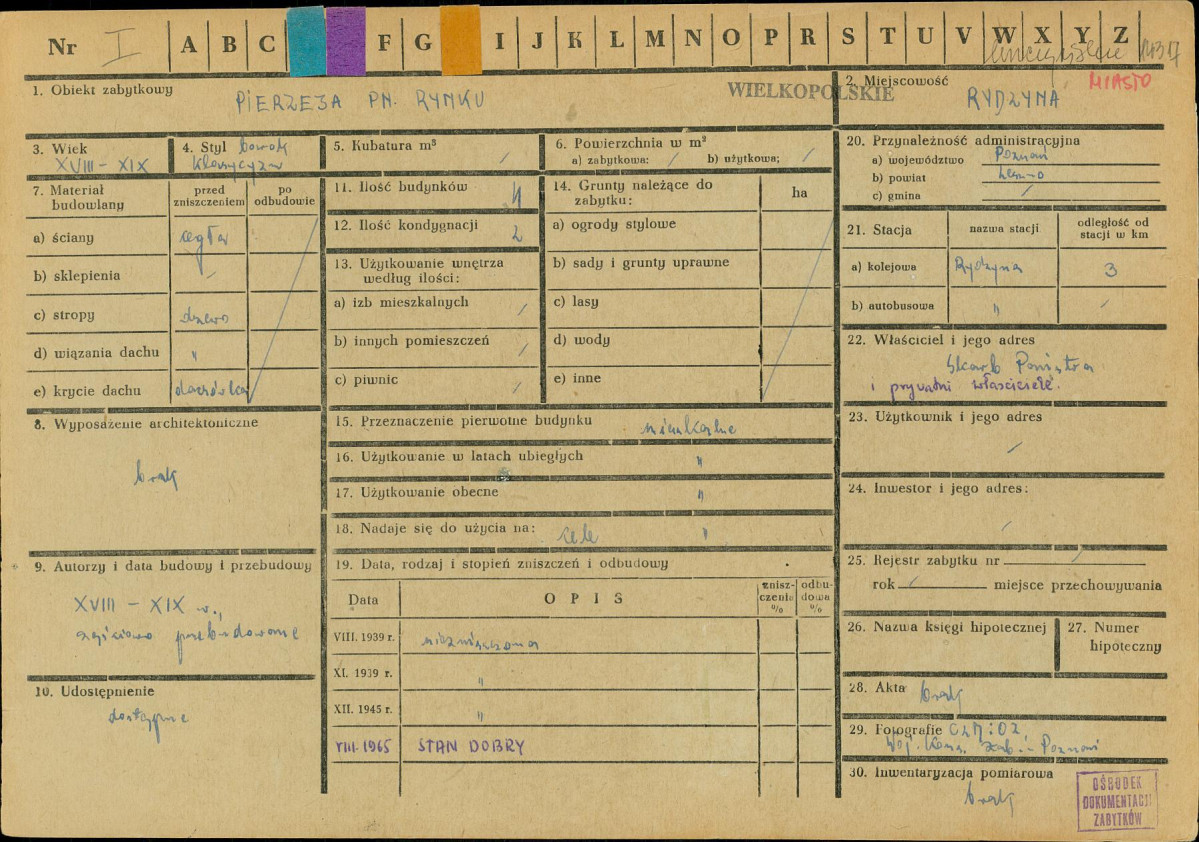 Nr I A B C F G I J K L M N O P R S T U V W X Y Z
1. Obiekt zabytkowy
PIERZEJA PN. RYNKU
WIELKOPOLSKIE
2. Miejscowość
RYDZYNA
MIASTO
3. Wiek
XVIII - XIX
4. Styl barok
klasycyzm
5. Kubatura m³ /
6. Powierzchnia w m²
a) zabytkowa: / b) użytkowa; /
7. Materiał budowlany
przed zniszczeniem
po odbudowie
a) ściany cegła
b) sklepienia /
c) stropy drewno
d) wiązania dachu "
e) krycie dachu dachówka
8. Wyposażenie architektoniczne
brak
9. Autorzy i data budowy i przebudowy
XVIII - XIX w.,
częściowo przebudowane
10. Udostępnienie
dostępne
11. Ilość budynków 4
12. Ilość kondygnacji 2
13. Użytkowanie wnętrza
według ilości:
a) izb mieszkalnych /
b) innych pomieszczeń /
c) piwnic /
14. Grunty należące do
zabytku:
ha
a) ogrody stylowe
b) sady i grunty uprawne
c) lasy
d) wody
e) inne
15. Przeznaczenie pierwotne budynku mieszkalne
16. Użytkowanie w latach ubiegłych "
17. Użytkowanie obecne "
18. Nadaje się do użycia na: cele "
19. Data, rodzaj i stopień zniszczeń i odbudowy
Data
OPIS
znisz-
czenia
%
odbu-
dowa
%
VIII. 1939 r. niezniszczona
XI. 1939 r. "
XII. 1945 r. "
VIII. 1965 STAN DOBRY
20. Przynależność administracyjna
a) województwo Poznań
b) powiat Leszno
c) gmina /
21. Stacja
nazwa stacji
odległość od
stacji w km
a) kolejowa Rydzyna 3
b) autobusowa " /
22. Właściciel i jego adres
Skarb Państwa
i prywatni właściciele.
23. Użytkownik i jego adres
/
24. Inwestor i jego adres:
/
25. Rejestr zabytku nr /
rok / miejsce przechowywania
26. Nazwa księgi hipotecznej
27. Numer
hipoteczny
28. Akta brak
29. Fotografie
Woj. Kons. Zab. Poznań
30. Inwentaryzacja pomiarowa
brak
OŚRODEK
DOKUMENTACJI
ZABYTKÓW